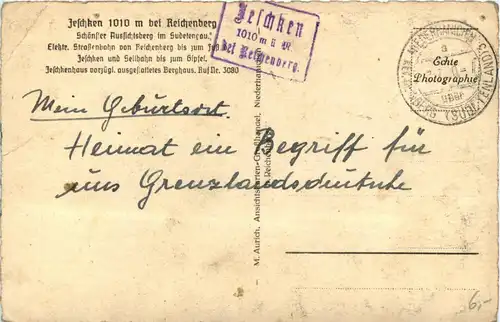 Jeschken 1010 m bei Reichenberg
Schönster Aussichtsberg im Sudetengau,
Elektr. Straßenbahn von Reichenberg bis zum Fuß
Jeschken und Seilbahn bis zum Gipfel.
Jeschkenhaus vorzügl. ausgestattetes Berghaus, Ruf Nr. 3080
Jeschken
1010 m ü. M.
bei Reichenberg.
Echte
Photographie
(SUDETENLAND)
Mein Geburtsort.
Heimat ein Begriff für
uns Grenzlandsdeutsche
M. Aurich, Ansichtskarten-Großhandel, Niederhanichen
Reichenberg
6,-